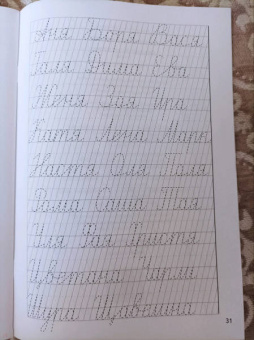 Аня Боря Вася
Галя Дима Ева
Женя Зоя Ира
Катя Лена Марк
Настя Оля Поля
Рома Саша Тая
Уля Фая Христя
Цветана Чарли
Шура Щавелина
31